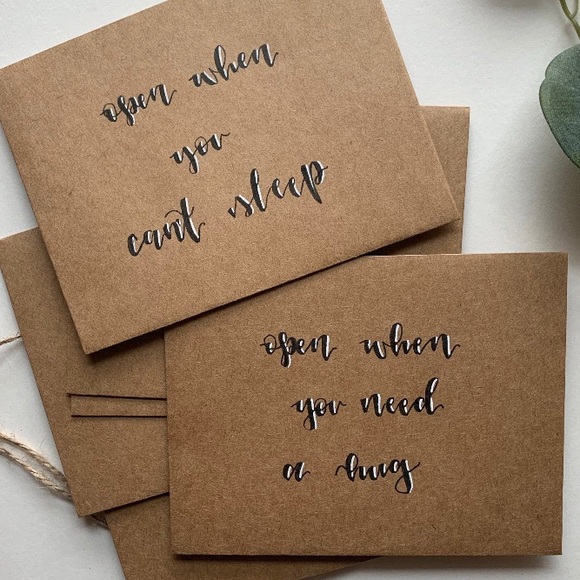 open when
you
can't sleep
open when
you need
a hug